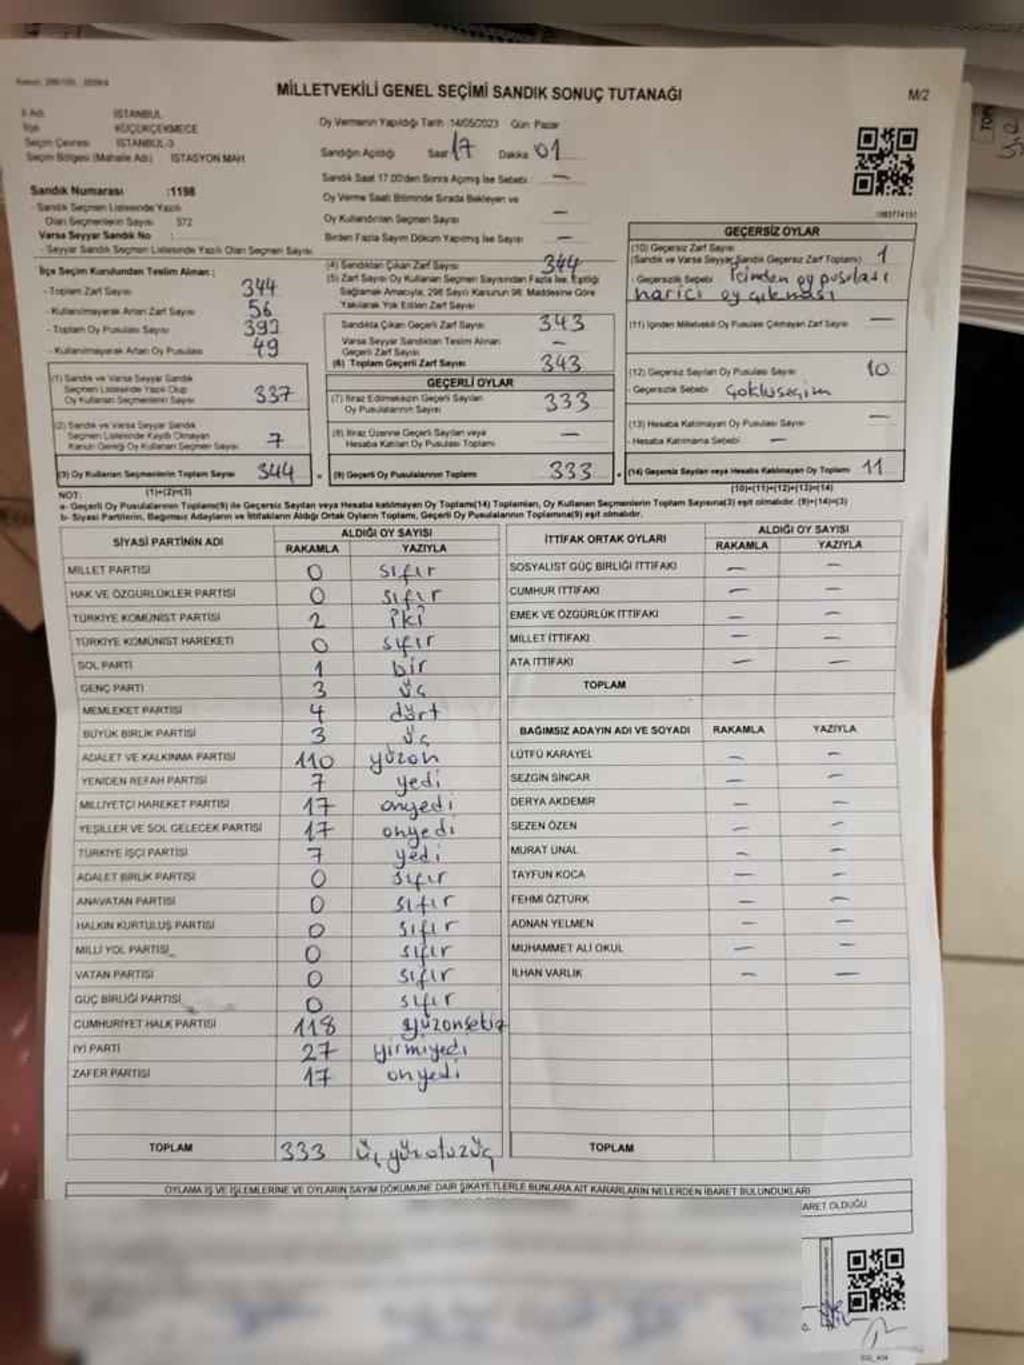 MİLLETVEKİLİ GENEL SEÇİMİ SANDIK SONUÇ TUTANAĞI
M/2
İl Adı İSTANBUL
İlçe KÜÇÜKÇEKMECE
Seçim Çevresi İSTANBUL-3
Seçim Bölgesi (Mahalle Adı) İSTASYON MAH
Sandık Numarası :1198
- Sandık Seçmen Listesinde Yazılı
Olan Seçmenlerin Sayısı 372
Varsa Seyyar Sandık No :
- Seyyar Sandık Seçmen Listesinde Yazılı Olan Seçmen Sayısı
Oy Vermenin Yapıldığı Tarih 14/05/2023 Gün Pazar
Sandığın Açıldığı Saat 17 Dakika 01
Sandık Saat 17.00'den Sonra Açılmış İse Sebebi : —
Oy Verme Saati Bitiminde Sırada Bekleyen ve
Oy Kullandırılan Seçmen Sayısı —
Birden Fazla Sayım Döküm Yapılmış İse Sayısı —
İlçe Seçim Kurulundan Teslim Alınan :
- Toplam Zarf Sayısı 344
- Kullanılmayarak Artan Zarf Sayısı 56
- Toplam Oy Pusulası Sayısı 392
- Kullanılmayarak Artan Oy Pusulası 49
(1) Sandık ve Varsa Seyyar Sandık
Seçmen Listesinde Yazılı Olup
Oy Kullanan Seçmenlerin Sayısı 337
(2) Sandık ve Varsa Seyyar Sandık
Seçmen Listesinde Kayıtlı Olmayan
Kanun Gereği Oy Kullanan Seçmen Sayısı 7
(3) Oy Kullanan Seçmenlerin Toplam Sayısı 344
(1)+(2)=(3)
(4) Sandıktan Çıkan Zarf Sayısı 344
(5) Zarf Sayısı Oy Kullanan Seçmen Sayısından Fazla İse, Eşitliği
Sağlamak Amacıyla, 298 Sayılı Kanunun 98. Maddesine Göre
Yakılarak Yok Edilen Zarf Sayısı
Sandıkta Çıkan Geçerli Zarf Sayısı 343
Varsa Seyyar Sandıktan Teslim Alınan
Geçerli Zarf Sayısı —
(6) Toplam Geçerli Zarf Sayısı 343
GEÇERLİ OYLAR
(7) İtiraz Edilmeksizin Geçerli Sayılan
Oy Pusulalarının Sayısı 333
(8) İtiraz Üzerine Geçerli Sayılan veya
Hesaba Katılan Oy Pusulası Toplamı —
(9) Geçerli Oy Pusulalarının Toplamı 333
GEÇERSİZ OYLAR
(10) Geçersiz Zarf Sayısı
(Sandık ve Varsa Seyyar Sandık Geçersiz Zarf Toplamı) 1
- Geçersizlik Sebebi İçinden oy pusulası
harici oy çıkması
(11) İçinden Milletvekili Oy Pusulası Çıkmayan Zarf Sayısı —
(12) Geçersiz Sayılan Oy Pusulası Sayısı 10
- Geçersizlik Sebebi Çoklu seçim
(13) Hesaba Katılmayan Oy Pusulası Sayısı —
- Hesaba Katılmama Sebebi —
(14) Geçersiz Sayılan veya Hesaba Katılmayan Oy Toplamı 11
(10)+(11)+(12)+(13)=(14)
NOT:
a- Geçerli Oy Pusulalarının Toplamı(9) ile Geçersiz Sayılan veya Hesaba katılmayan Oy Toplamı(14) Toplamları, Oy Kullanan Seçmenlerin Toplam Sayısına(3) eşit olmalıdır. (9)+(14)=(3)
b- Siyasi Partilerin, Bağımsız Adayların ve İttifakların Aldığı Ortak Oyların Toplamı, Geçerli Oy Pusulalarının Toplamına(9) eşit olmalıdır.
SİYASİ PARTİNİN ADI ALDIĞI OY SAYISI
RAKAMLA YAZIYLA
MİLLET PARTİSİ 0 sıfır
HAK VE ÖZGÜRLÜKLER PARTİSİ 0 sıfır
TÜRKİYE KOMÜNİST PARTİSİ 2 iki
TÜRKİYE KOMÜNİST HAREKETİ 0 sıfır
SOL PARTİ 1 bir
GENÇ PARTİ 3 üç
MEMLEKET PARTİSİ 4 dört
BÜYÜK BİRLİK PARTİSİ 3 üç
ADALET VE KALKINMA PARTİSİ 110 yüzon
YENİDEN REFAH PARTİSİ 7 yedi
MİLLİYETÇİ HAREKET PARTİSİ 17 onyedi
YEŞİLLER VE SOL GELECEK PARTİSİ 17 onyedi
TÜRKİYE İŞÇİ PARTİSİ 7 yedi
ADALET BİRLİK PARTİSİ 0 sıfır
ANAVATAN PARTİSİ 0 sıfır
HALKIN KURTULUŞ PARTİSİ 0 sıfır
MİLLİ YOL PARTİSİ 0 sıfır
VATAN PARTİSİ 0 sıfır
GÜÇ BİRLİĞİ PARTİSİ 0 sıfır
CUMHURİYET HALK PARTİSİ 118 yüzonsekiz
İYİ PARTİ 27 yirmiyedi
ZAFER PARTİSİ 17 onyedi
TOPLAM 333 üçyüzotuzüç
İTTİFAK ORTAK OYLARI ALDIĞI OY SAYISI
RAKAMLA YAZIYLA
SOSYALİST GÜÇ BİRLİĞİ İTTİFAKI — —
CUMHUR İTTİFAKI — —
EMEK VE ÖZGÜRLÜK İTTİFAKI — —
MİLLET İTTİFAKI — —
ATA İTTİFAKI — —
TOPLAM
BAĞIMSIZ ADAYIN ADI VE SOYADI RAKAMLA YAZIYLA
LÜTFÜ KARAYEL — —
SEZGİN SİNCAR — —
DERYA AKDEMİR — —
SEZEN ÖZEN — —
MURAT ÜNAL — —
TAYFUN KOCA — —
FEHMİ ÖZTÜRK — —
ADNAN YELMEN — —
MUHAMMET ALİ OKUL — —
İLHAN VARLIK — —
TOPLAM
OYLAMA İŞ VE İŞLEMLERİNE VE OYLARIN SAYIM DÖKÜMÜNE DAİR ŞİKAYETLERLE BUNLARA AİT KARARLARIN NELERDEN İBARET BULUNDUKLARI
ARET OLDUĞU